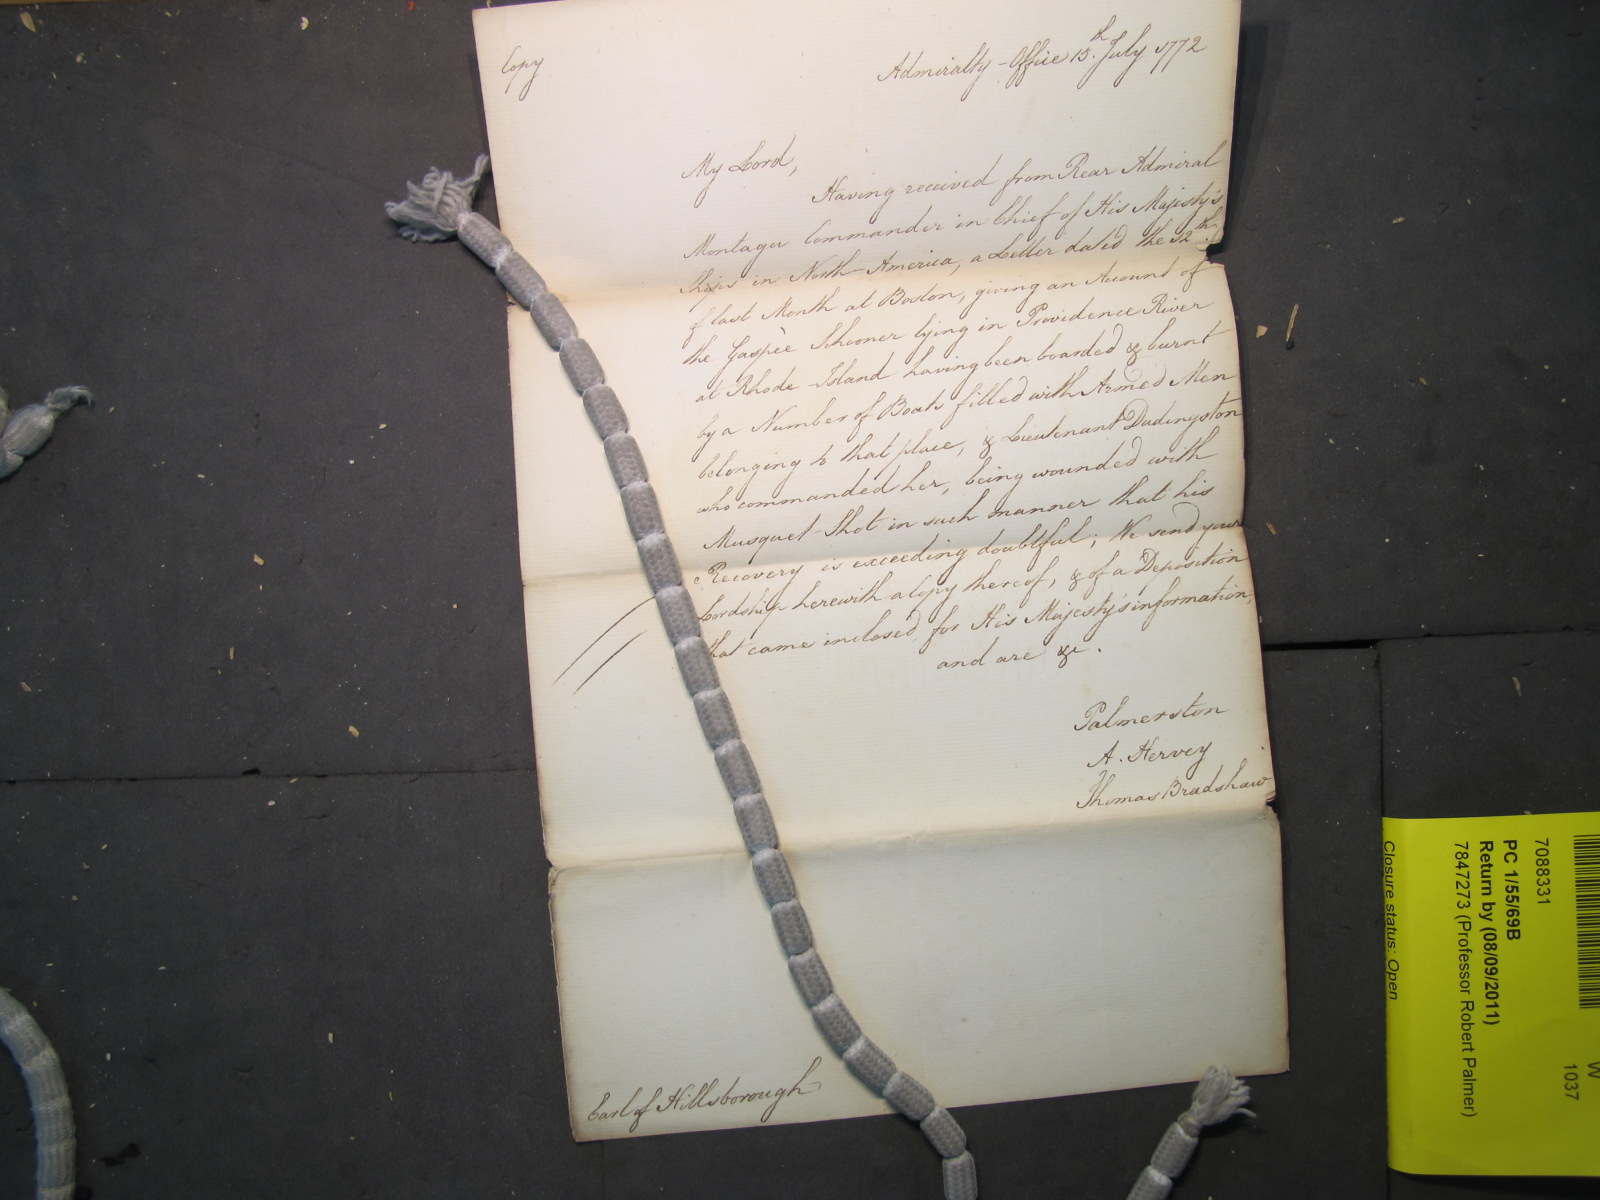 Copy
Admiralty-Office 15th July 1772
My Lord,
Having received from Rear Admiral
Montagu Commander in Chief of His Majesty's
Ships in North-America, a Letter dated the 12th
of last Month at Boston, giving an Account of
the Gaspèe Schooner lying in Providence River
at Rhode-Island having been boarded & burnt
by a Number of Boats filled with Armed Men
belonging to that place, & Lieutenant Dudingston
who commanded her, being wounded with
Musquet-Shot in such manner that his
Recovery is exceeding doubtful; We send your
Lordship herewith a Copy thereof, & of a Deposition
that came inclosed for His Majesty's information,
and are &c.
Palmerston
A. Hervey
Thomas Bradshaw
Earl of Hillsborough
7088331
PC 1/55/69B
Return by (08/09/2011)
7847273 (Professor Robert Palmer)
Closure status: Open
W
1037